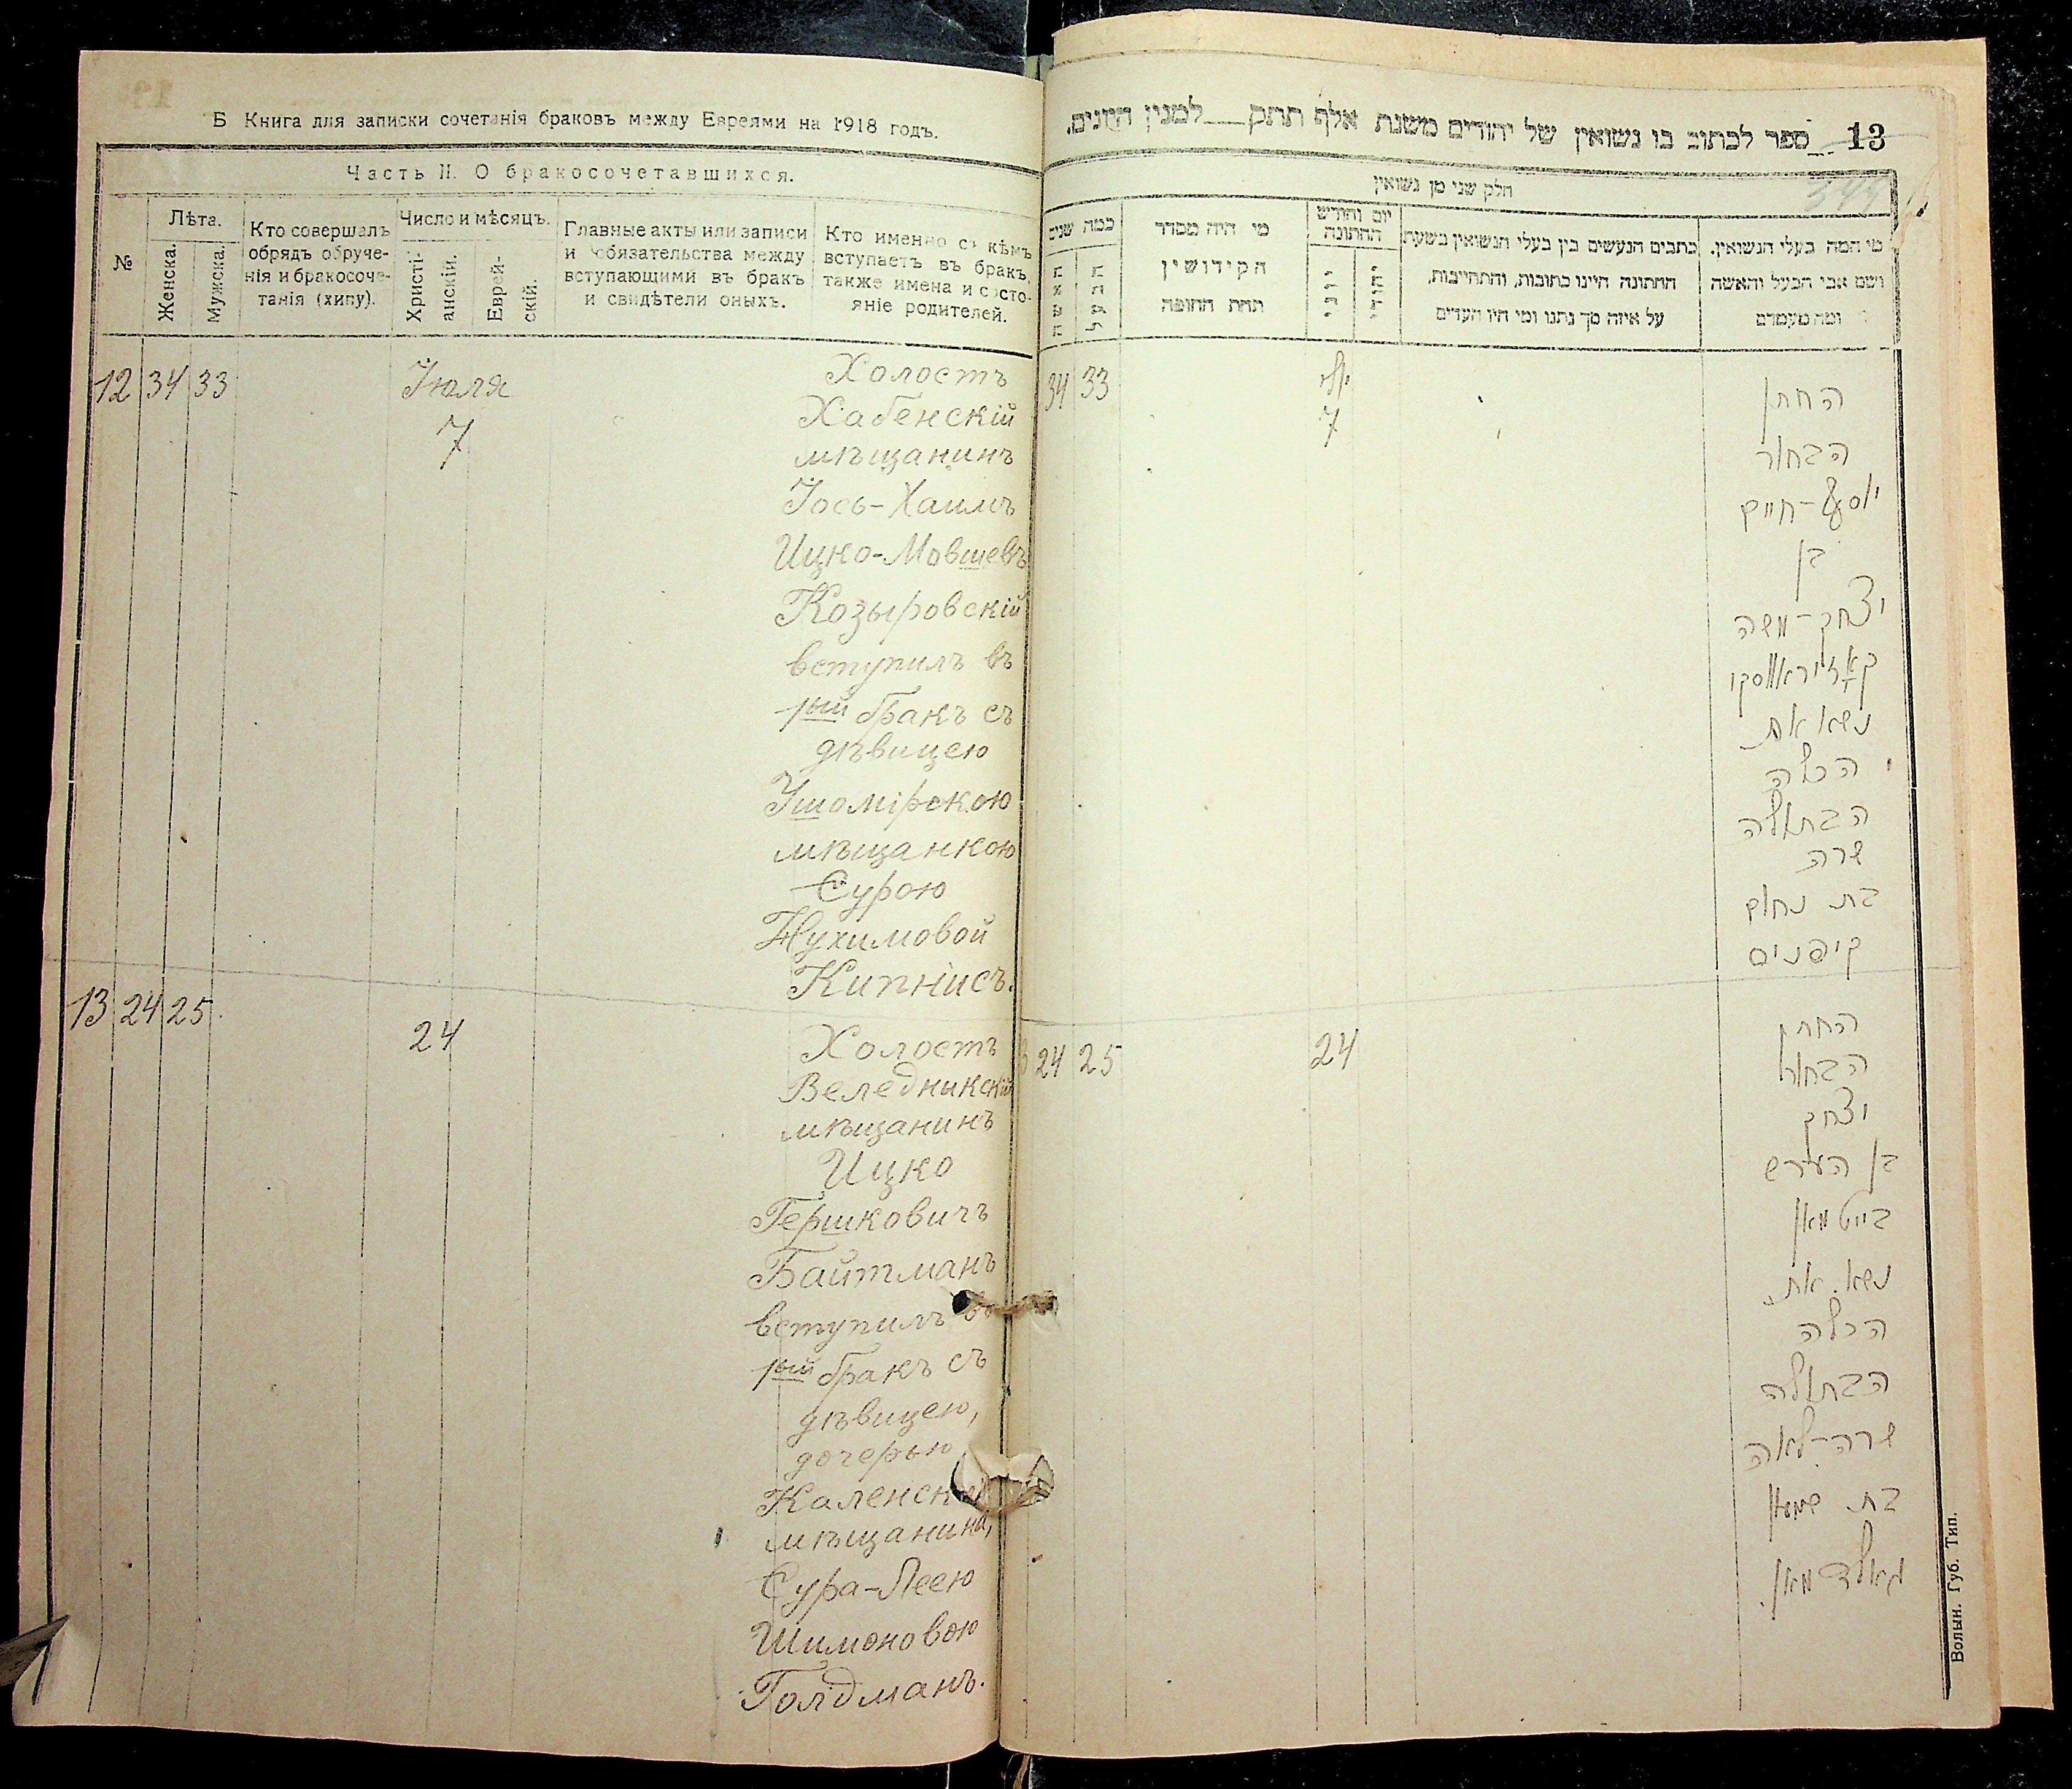 Б Книга для записки сочетанія браковъ между Евреями на 1918 годъ.
Часть II. О бракосочетавшихся.
№
Лѣта.
Женска.
Мужска.
Кто совершалъ
обрядъ обруче-
нія и бракосоче-
танія (хипу).
Число и мѣсяцъ.
Христі-
анскій.
Еврей-
скій.
Главные акты или записи
и обязательства между
вступающими въ бракъ
и свидѣтели оныхъ.
Кто именно съ кѣмъ
вступаетъ въ бракъ,
также имена и состо-
яніе родителей.
12 34 33 Іюля
7
Холостъ
Хабенскій
мѣщанинъ
Іось-Хаимъ
Ицко-Мовшевъ
Козыровскій
вступилъ въ
1ый бракъ съ
дѣвицею
Ушомірскою
мѣщанкою
Сурою
Нухимовой
Кипнисъ.
13 24 25 24
Холостъ
Веледныкскій
мѣщанинъ
Ицко
Гершковичъ
Байтманъ
вступилъ въ
1ый бракъ съ
дѣвицею,
дочерью
мѣщанина,
Сура-Леею
Шимоновою
Голдманъ.
13 ספר לכתוב בו נשואין של יהודים משנת אלף תתק___למנין היונים.
344
חלק שני מן נשואין
מי המה בעלי הנשואין.
ושם אבי הבעל והאשה
ומה מעמדם
כתבים הנעשים בין בעלי הנשואין בשעת
החתונה היינו כתובות, והתחייבות,
על איזה סך נתנו ומי היו העדים
יום וחודש
החתונה
יהודי
יוני
מי היה מסדר
הקידושין
תחת החופה
כמה שנים
הבעל
האשה
34 33 יולי
7
החתן
הבחור
יוסף-חיים
בן
יצחק-משה
קאזיראווסקי
נשא את
הכלה
הבתולה
שרה
בת נחום
קיפניס
24 25 24
החתן
הבחור
יצחק
בן הערש
בייטמאן
נשא את
הכלה
הבתולה
שרה-לאה
בת שמעון
גאלדמאן.
Волын. Губ. Тип.